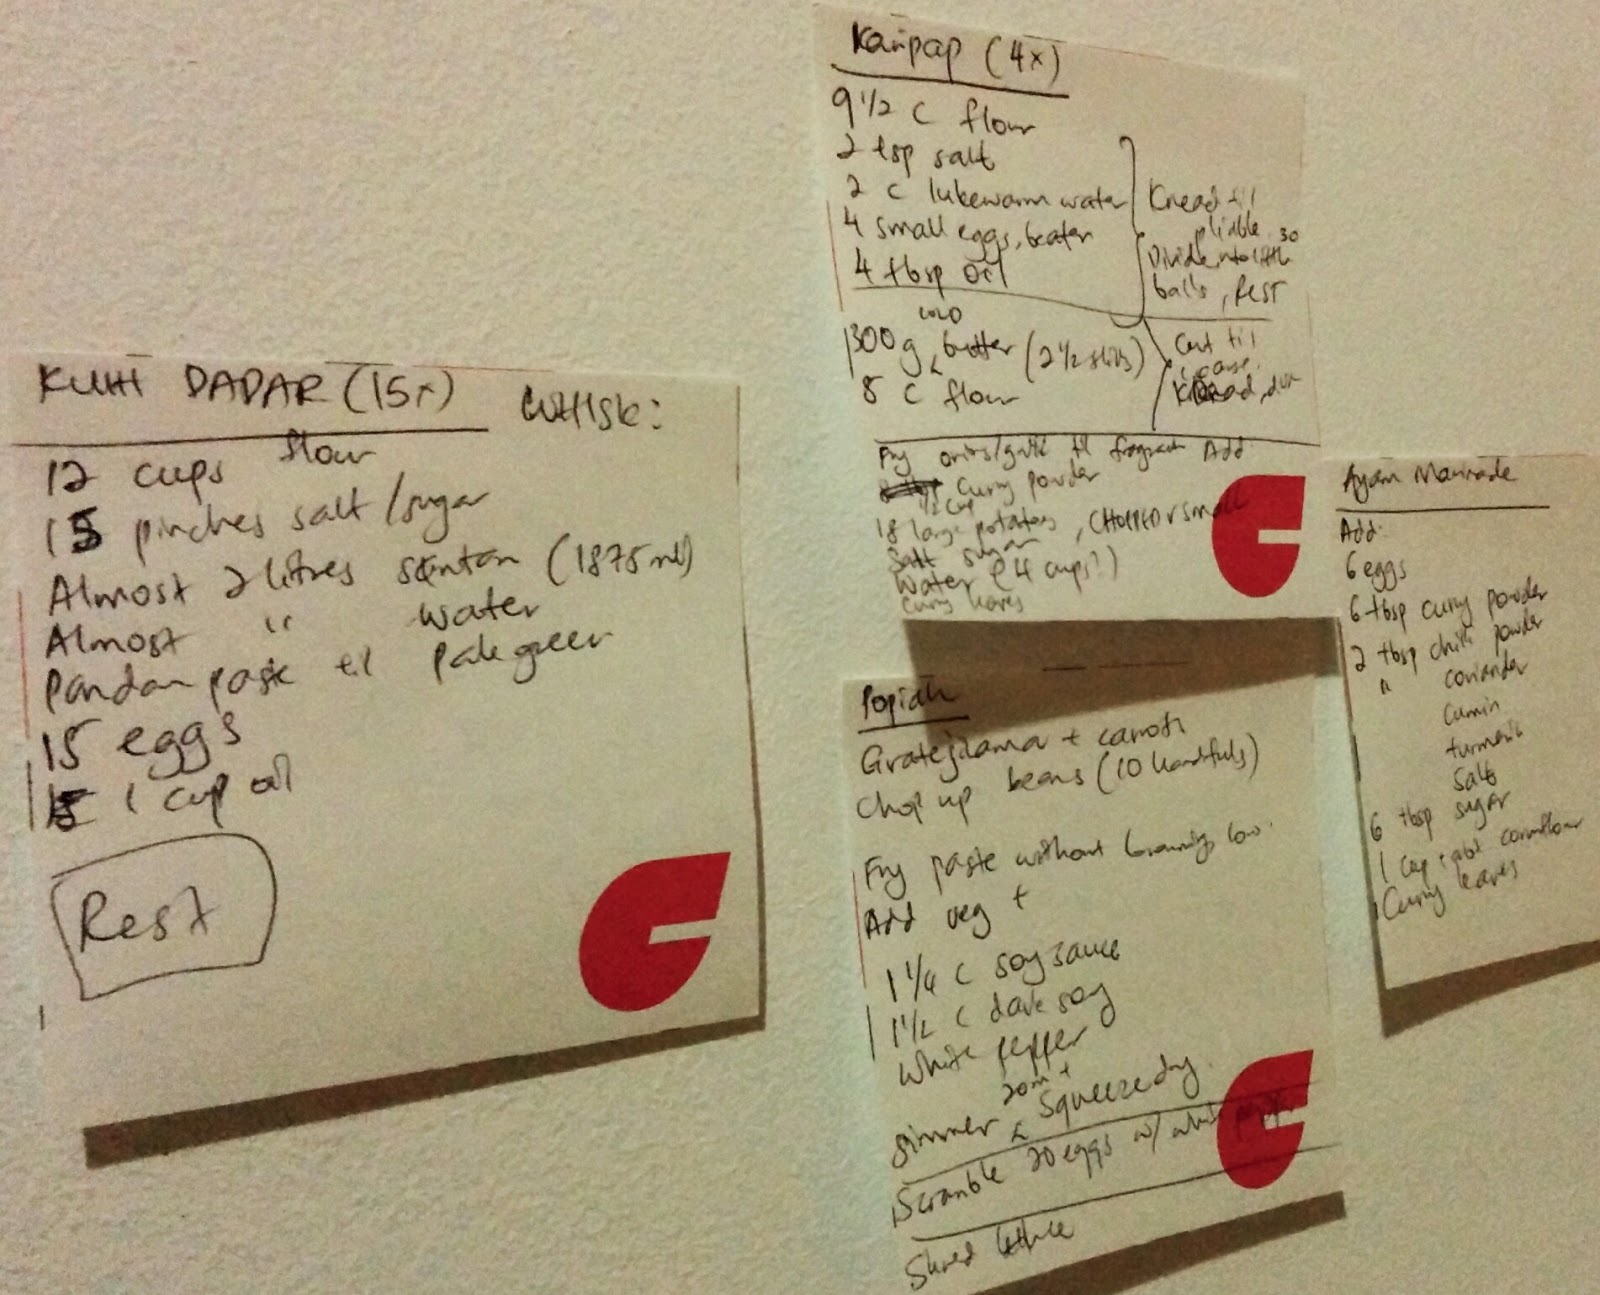 KUIH DADAR (15x) WHISK:
12 cups flour
15 pinches salt/sugar
Almost 2 litres santan (1875ml)
Almost " water
Pandan paste til pale green
15 eggs
1 cup oil
Rest
Karipap (4x)
9 1/2 c flour
2 tsp salt
2 c lukewarm water
4 small eggs, beaten
4 tbsp oil
Knead til
pliable.
Divide into little 30
balls, REST
300g cold butter (2 1/2 sticks)
8 c flour
Cut til
coarse.
Knead,
Fry onions/garlic til fragrant Add
1/2 cup curry powder
18 large potatoes, CHOPPED small
Salt sugar
Water (4 cups?)
Curry leaves
Popiah
Grate jicama + carrots
Chop up beans (10 handfuls)
Fry paste without browning, low.
Add veg +
1 1/4 c soy sauce
1 1/2 c dark soy
White pepper
Simmer 20m + Squeeze dry.
Scramble 20 eggs w/ white
Shred lettuce
Ayam Marinade
Add:
6 eggs
6 tbsp curry powder
2 tbsp chilli powder
" coriander
cumin
turmeric
salt
6 tbsp sugar
1 cup cornflour
Curry leaves